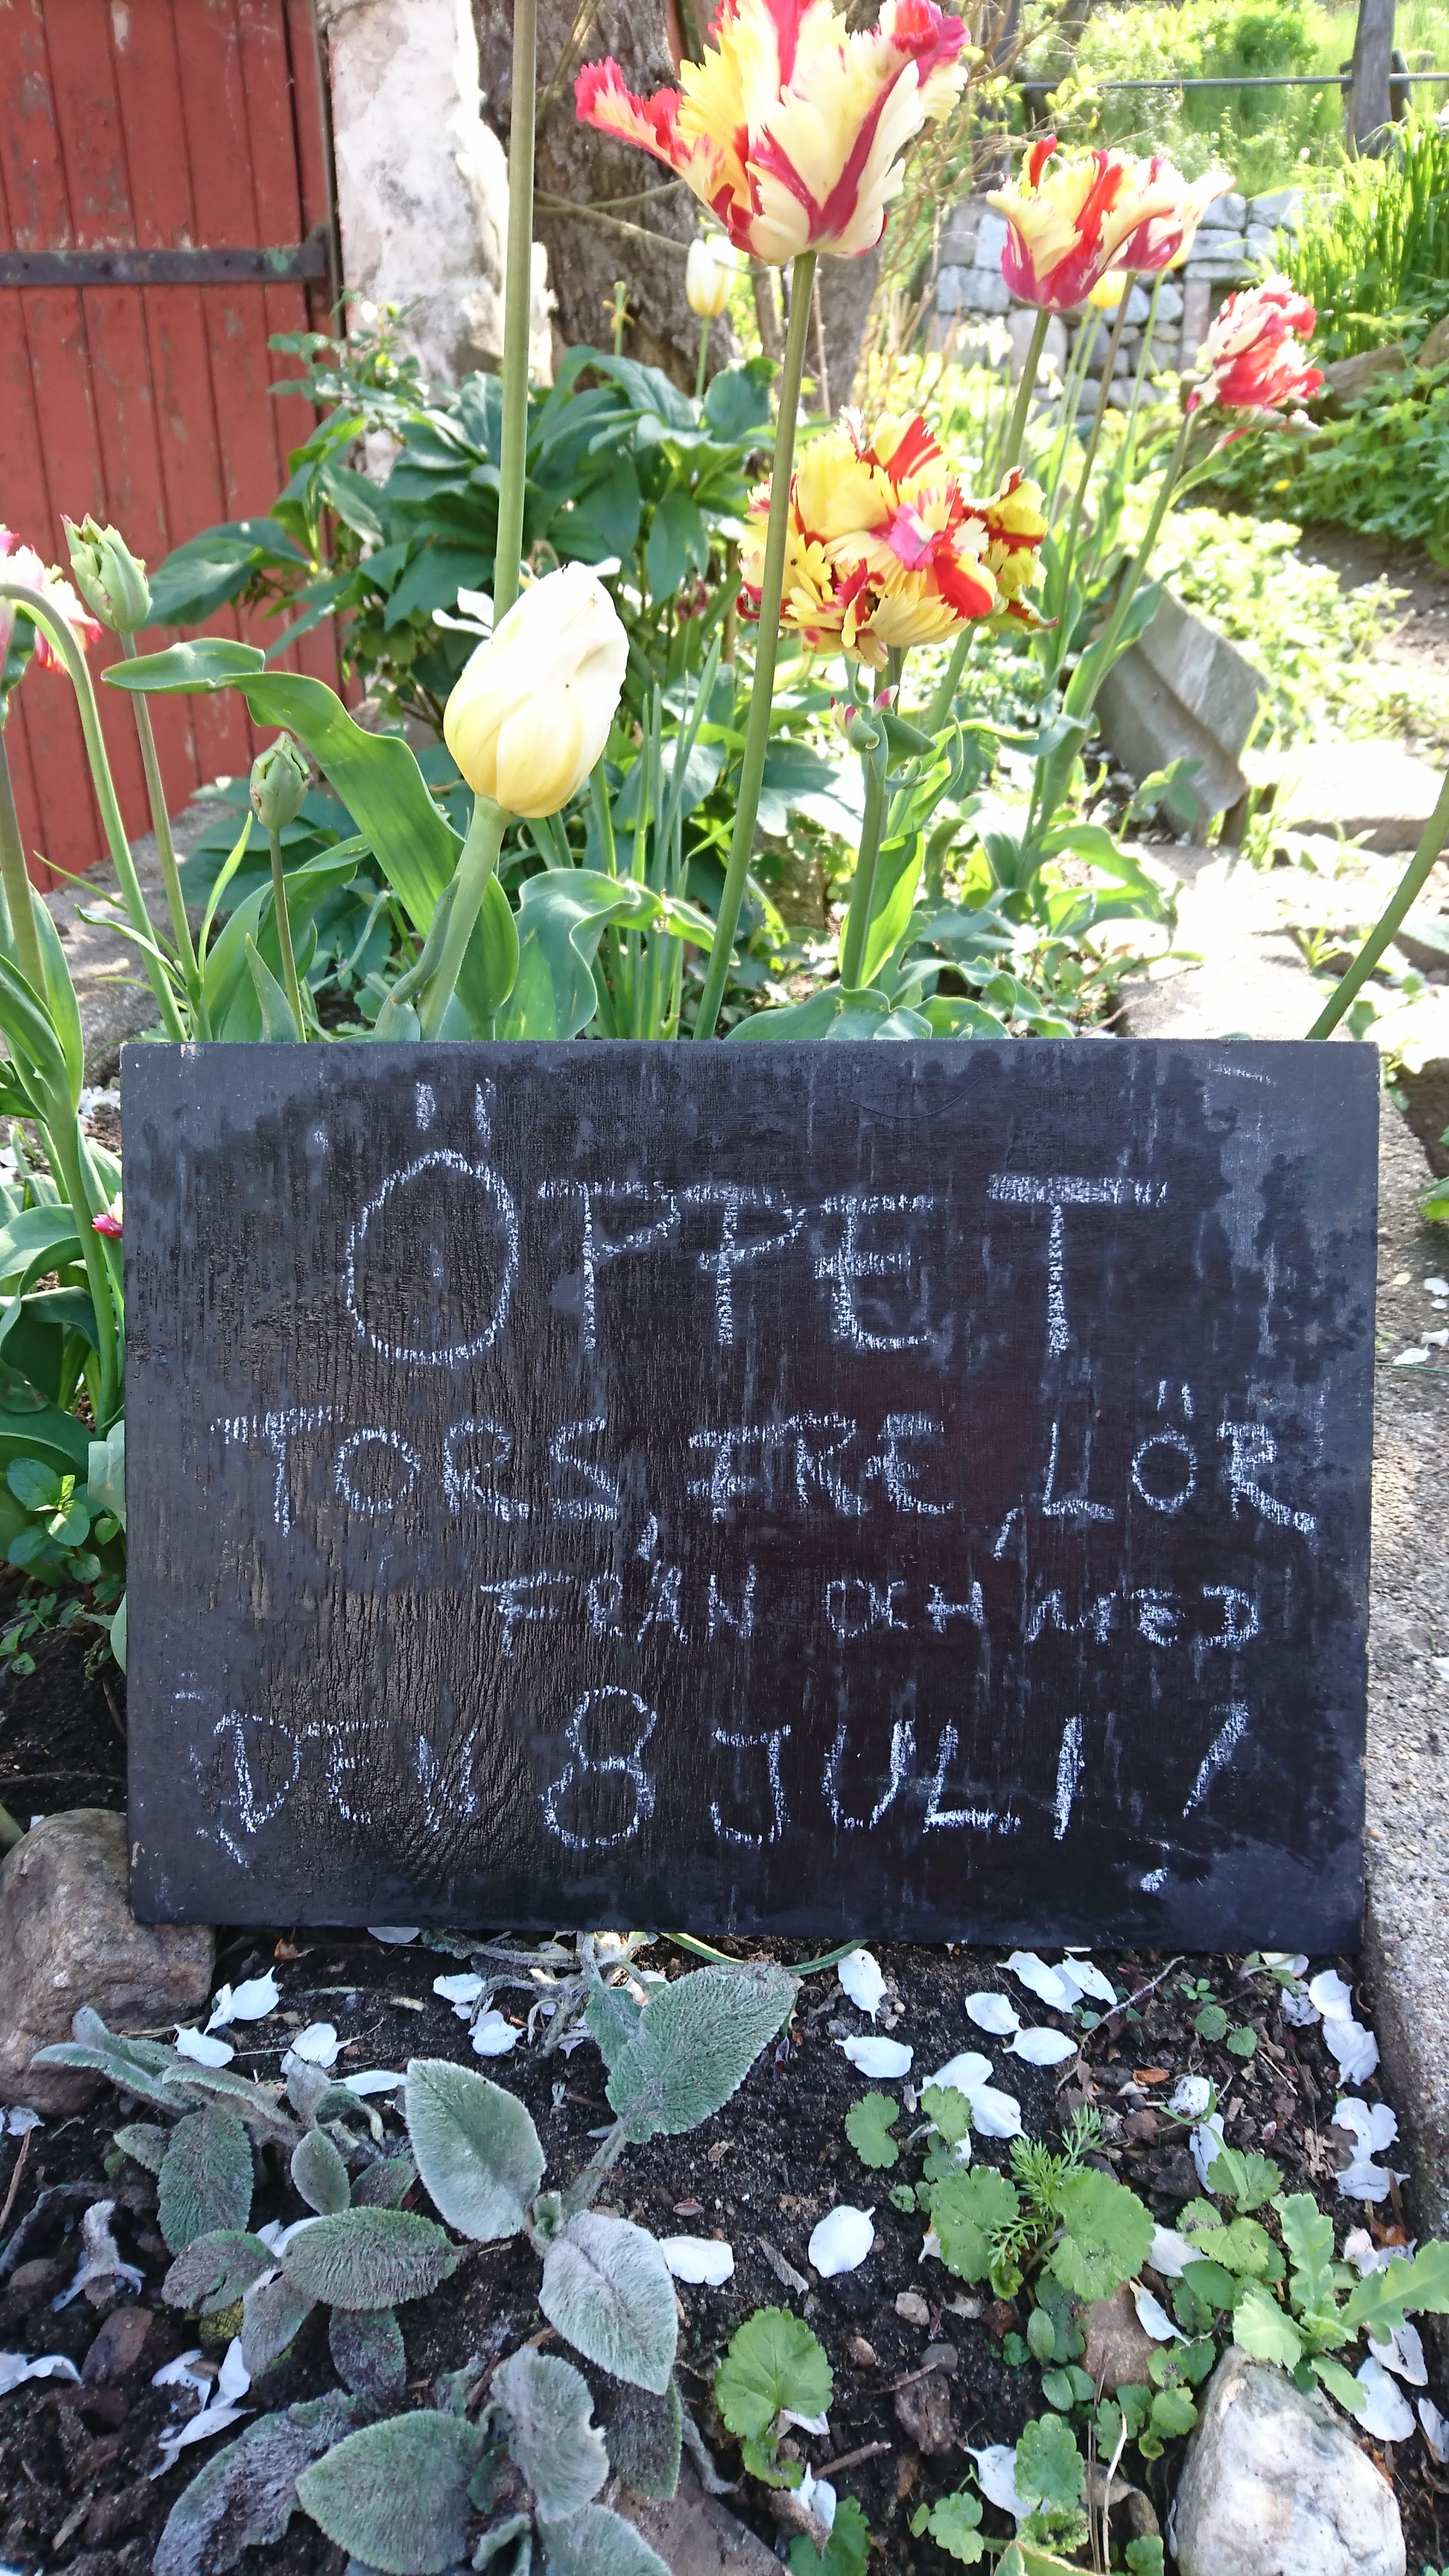 ÖPPET
TORS, FRE, LÖR
FRÅN OCH MED
DEN 8 JULI!